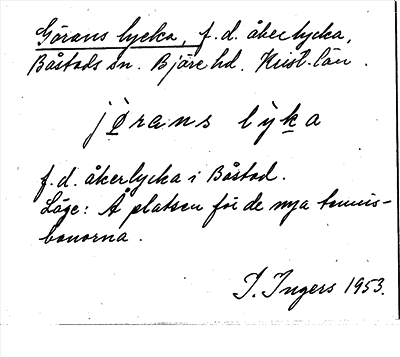 Görans lycka, f.d. åkerlycka,
Båstads sn. Bjäre hd. Krist. län.
jø̱rans lỳḵa
f.d. åkerlycka i Båstad.
Läge: Å platsen för de nya tennis-
banorna.
I. Ingers 1953.